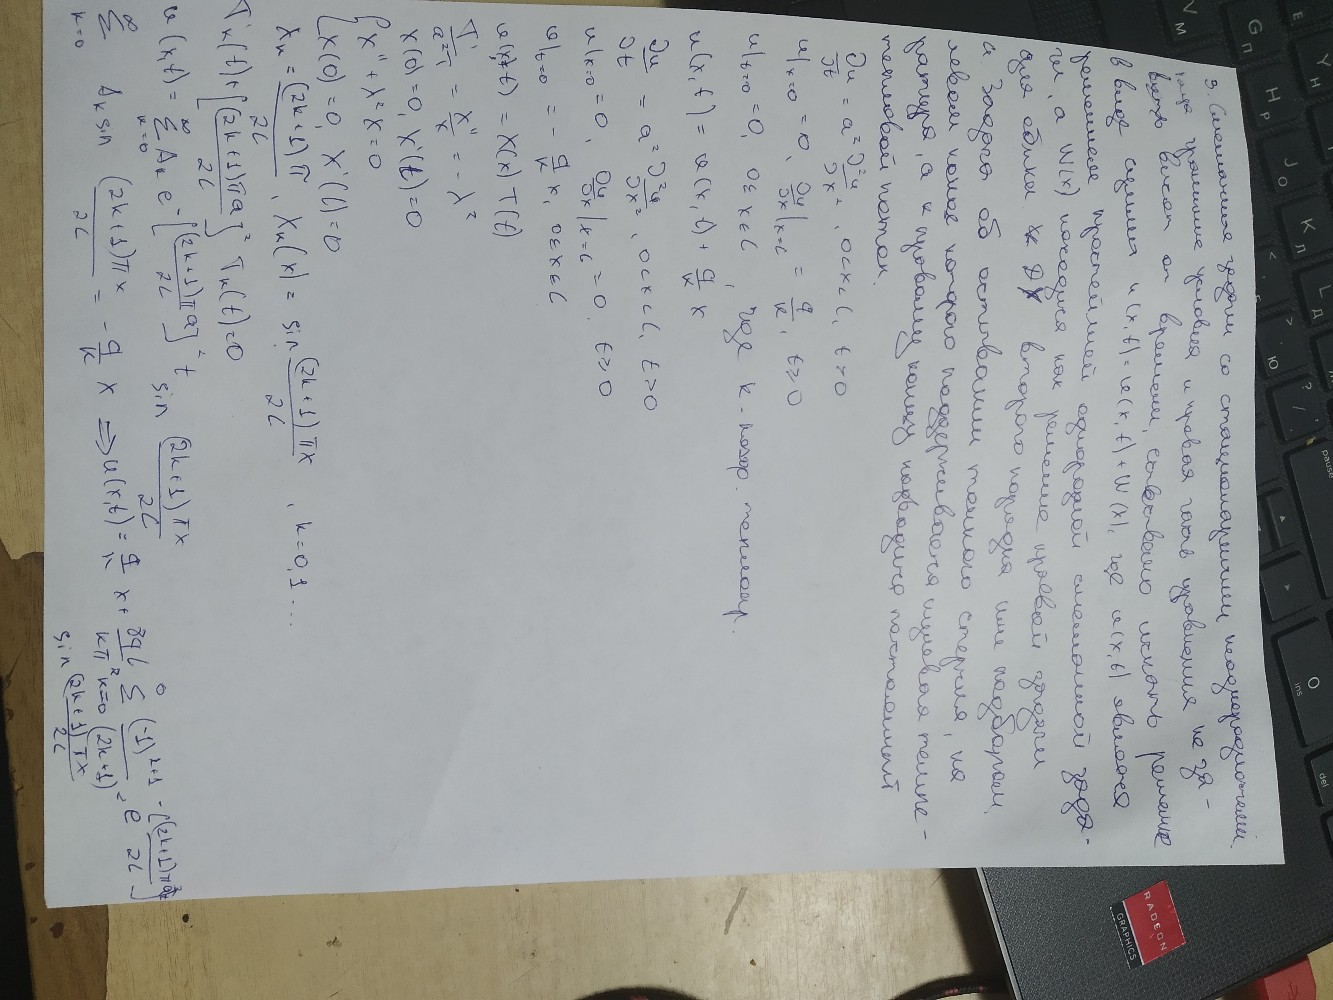 9. Смешанные задачи со стационарными неоднородностями.
Когда граничные условия и правая часть уравнения не за-
висят от времени, естественно искать решение
в виде суммы u(x,t) = v(x,t) + W(x), где v(x,t) является
решением простейшей однородной смешанной зада-
чи, а W(x) находится как решение краевой задачи
для обыкн. ДУ второго порядка или подбором.
Задача об остывании тонкого стержня, на
левом конце которого поддерживается нулевая темпе-
ратура, а к правому концу подводится постоянный
тепловой поток.
∂u/∂t = a² ∂²u/∂x², 0<x<l, t>0
u|x=0 = 0, ∂u/∂x|x=l = q/k, t≥0
u|t=0 = 0, 0≤x≤l, где k - коэф.
u(x,t) = v(x,t) + q/k x
∂v/∂t = a² ∂²v/∂x², 0<x<l, t>0
v|x=0 = 0, ∂v/∂x|x=l = 0, t≥0
v|t=0 = - q/k x, 0≤x≤l
v(x,t) = X(x) T(t)
T'/a²T = X''/X = -λ²
X(0)=0, X'(l)=0
{ X'' + λ²X = 0
X(0) = 0, X'(l) = 0
λk = (2k+1)π/2l, Xk(x) = sin (2k+1)πx/2l, k=0,1...
T'k(t) + [(2k+1)πa/2l]² Tk(t) = 0
v(x,t) = ∞Σk=0 Ak e^-[(2k+1)πa/2l]²t sin (2k+1)πx/2l
∞Σk=0 Ak sin (2k+1)πx/2l = - q/k x ⇒ u(x,t) = q/k x + 8ql/kπ² Σk=0 (-1)^k+1/(2k+1)² e^-[(2k+1)πa/2l]²t sin (2k+1)πx/2l
RADEON
GRAPHICS
pause
ins
del